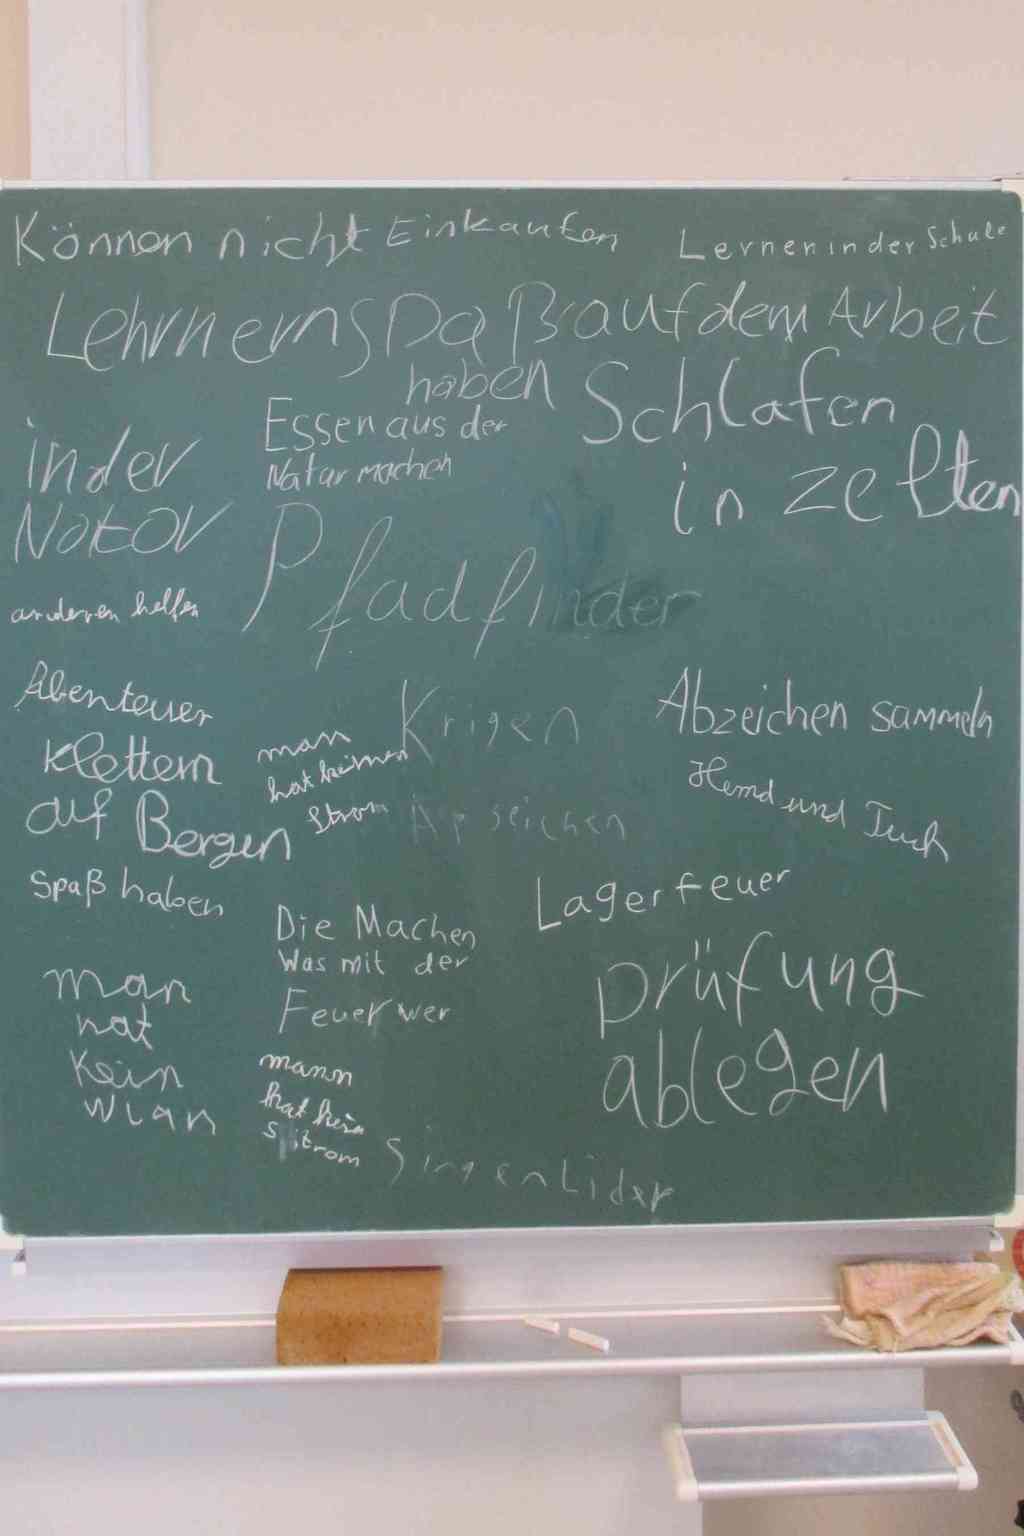 Können nicht Einkaufen
Lernen in der Schule
Lehrnern Spaß auf dem Arbeit
haben
Schlafen
in zelten
Essen aus der
Natur machen
in der
Notor
Pfadfinder
anderen helfen
Abenteuer
Klettern
auf Bergen
man
hat keinen
Strom
Krigen
Apseichen
Abzeichen sammeln
Hemd und Tuch
Spaß haben
Lagerfeuer
Die Machen
Was mit der
Feuer wer
prüfung
ablegen
man
hat
Kein
Wlan
mann
hat kein
Strom
Singen Lider